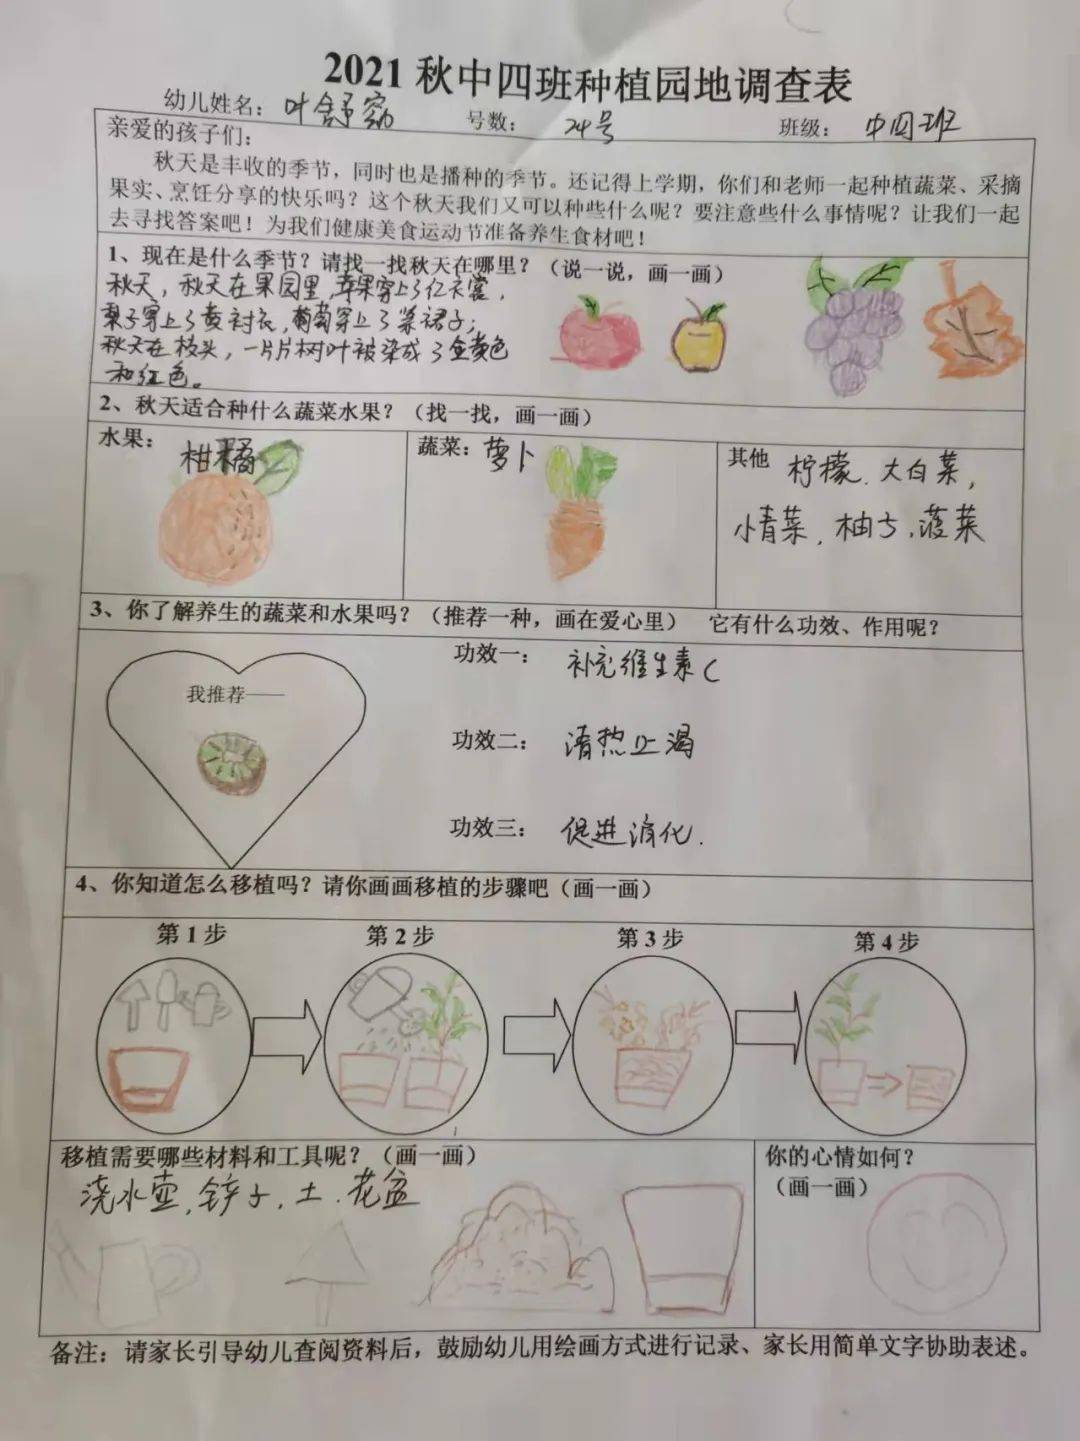 2021秋中四班种植园地调查表
幼儿姓名：叶舒 号数：24号 班级：中四班
亲爱的孩子们：
秋天是丰收的季节，同时也是播种的季节。还记得上学期，你们和老师一起种植蔬菜、采摘
果实、烹饪分享的快乐吗？这个秋天我们又可以种些什么呢？要注意些什么事情呢？让我们一起
去寻找答案吧！为我们健康美食运动节准备养生食材吧！
1、现在是什么季节？请找一找秋天在哪里？（说一说，画一画）
秋天，秋天在果园里，苹果穿上了红衣裳，
梨子穿上了黄衬衣，葡萄穿上了紫裙子；
秋天在枝头，一片片树叶被染成了金黄色
和红色。
2、秋天适合种什么蔬菜水果？（找一找，画一画）
水果：柑橘
蔬菜：萝卜
其他 柠檬、大白菜，
小青菜，柚子，菠菜
3、你了解养生的蔬菜和水果吗？（推荐一种，画在爱心里） 它有什么功效、作用呢？
我推荐——
功效一：补充维生素C
功效二：清热止渴
功效三：促进消化.
4、你知道怎么移植吗？请你画画移植的步骤吧（画一画）
第1步 第2步 第3步 第4步
移植需要哪些材料和工具呢？（画一画）
浇水壶，铲子，土.花盆
你的心情如何？
（画一画）
备注：请家长引导幼儿查阅资料后，鼓励幼儿用绘画方式进行记录、家长用简单文字协助表述。